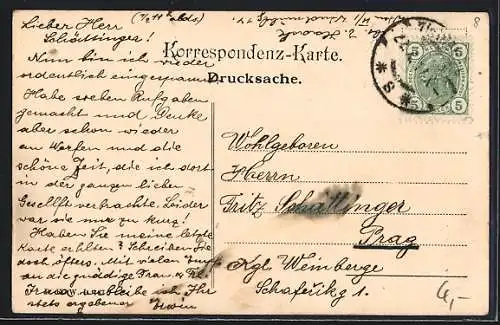 Lieber Herr (½ 11ʰ abds)
Schöttinger!
Nun bin ich wieder
ordentlich eingespannt.
Habe soeben Aufgaben
gemacht und denke
aber schon wieder
an Werfen und die
schöne Zeit, die ich dort
in der ganzen lieben
Gesellft verbrachte. Leider
war sie nur zu kurz!
Haben Sie meine letzte
Karte erhlten? Schreiben Sie
doch öfters. Mit vielen
an die gnädige Frau &
verbleibe ich Ihr
stets ergebener Erwin
Korrespondenz-Karte.
Drucksache.
5 5
5 5
8
Wohlgeboren
Herrn
Fritz Schattinger
Prag
Kgl. Weinberge
Schafeřikg 1.
6,-